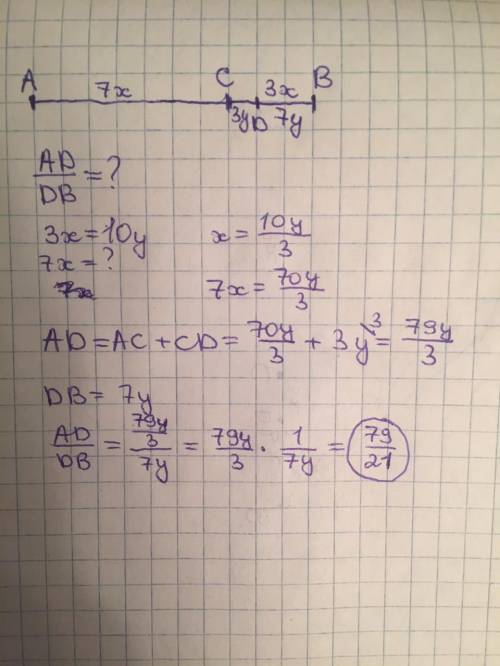 A 7x C 3x B
3y D 7y
AD/DB = ?
3x = 10y x = 10y/3
7x = ?
7x = 70y/3
AD = AC + CD = 70y/3 + 3y^3 = 79y/3
DB = 7y
AD/DB = (79y/3)/(7y) = 79y/3 · 1/7y = 79/21